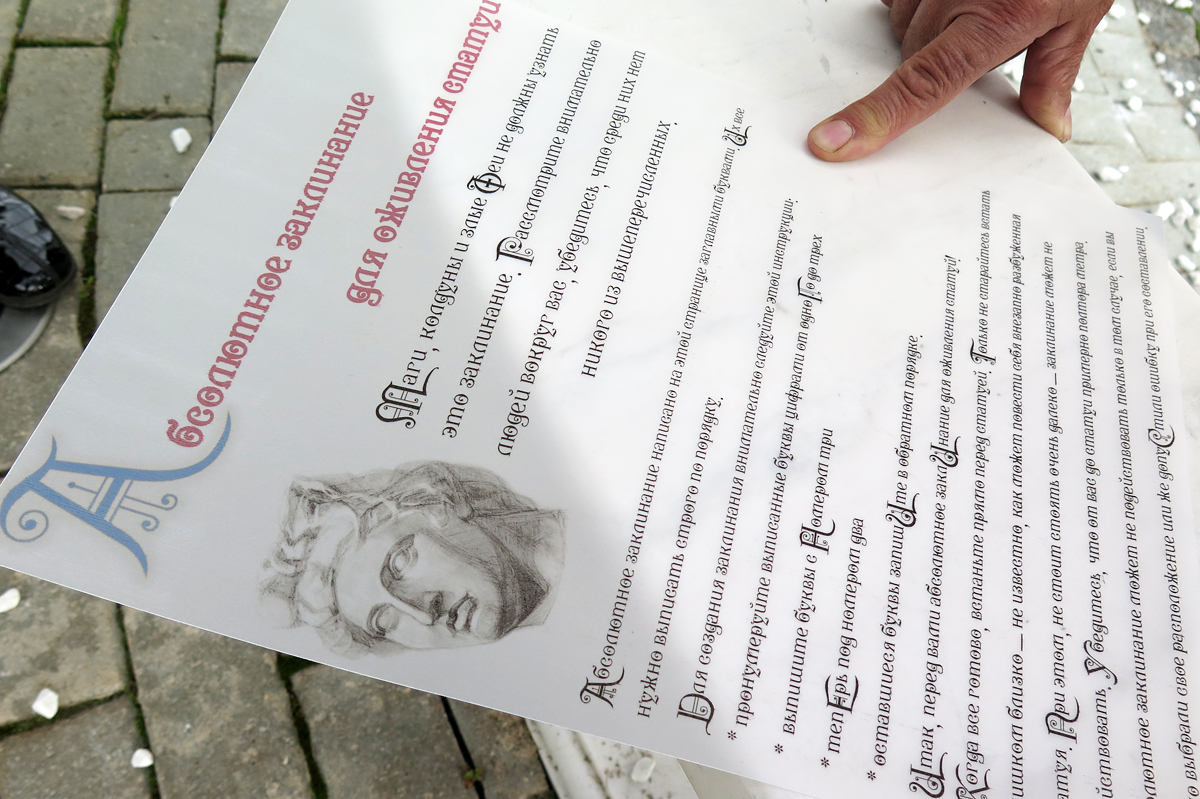 Абсолютное заклинание
для оживления статуи
Маги, колдуны и злые Феи не должны узнать
это заклинание. Рассмотрите внимательно
людей вокруг вас, убедитесь, что среди них нет
никого из вышеперечисленных.
Абсолютное заклинание написано на этой странице заглавными буквами. Их все
нужно выписать строго по порядку.
Для создания заклинания внимательно следуйте этой инструкции:
* пронумеруйте выписанные буквы цифрами от одноГо до трех
* выпишите буквы с Номером три
* тепЕрь под номером два
* оставшиеся буквы запишИте в обратном порядке.
Итак, перед вами абсолютное заклИнание для оживления статуи!
Когда все готово, встаньте прямо перед статуей. Только не старайтесь встать
ишком близко – не известно, как может повести себя внезапно разбуженная
атуя. При этом, не стоит стоять очень далеко – заклинание может не
йствовать. Убедитесь, что от вас до статуи примерно полтора метра.
лютное заклинание может не подействовать только в том случае, если вы
о выбрали свое расположение или же допуСтили ошибку при его составлении.